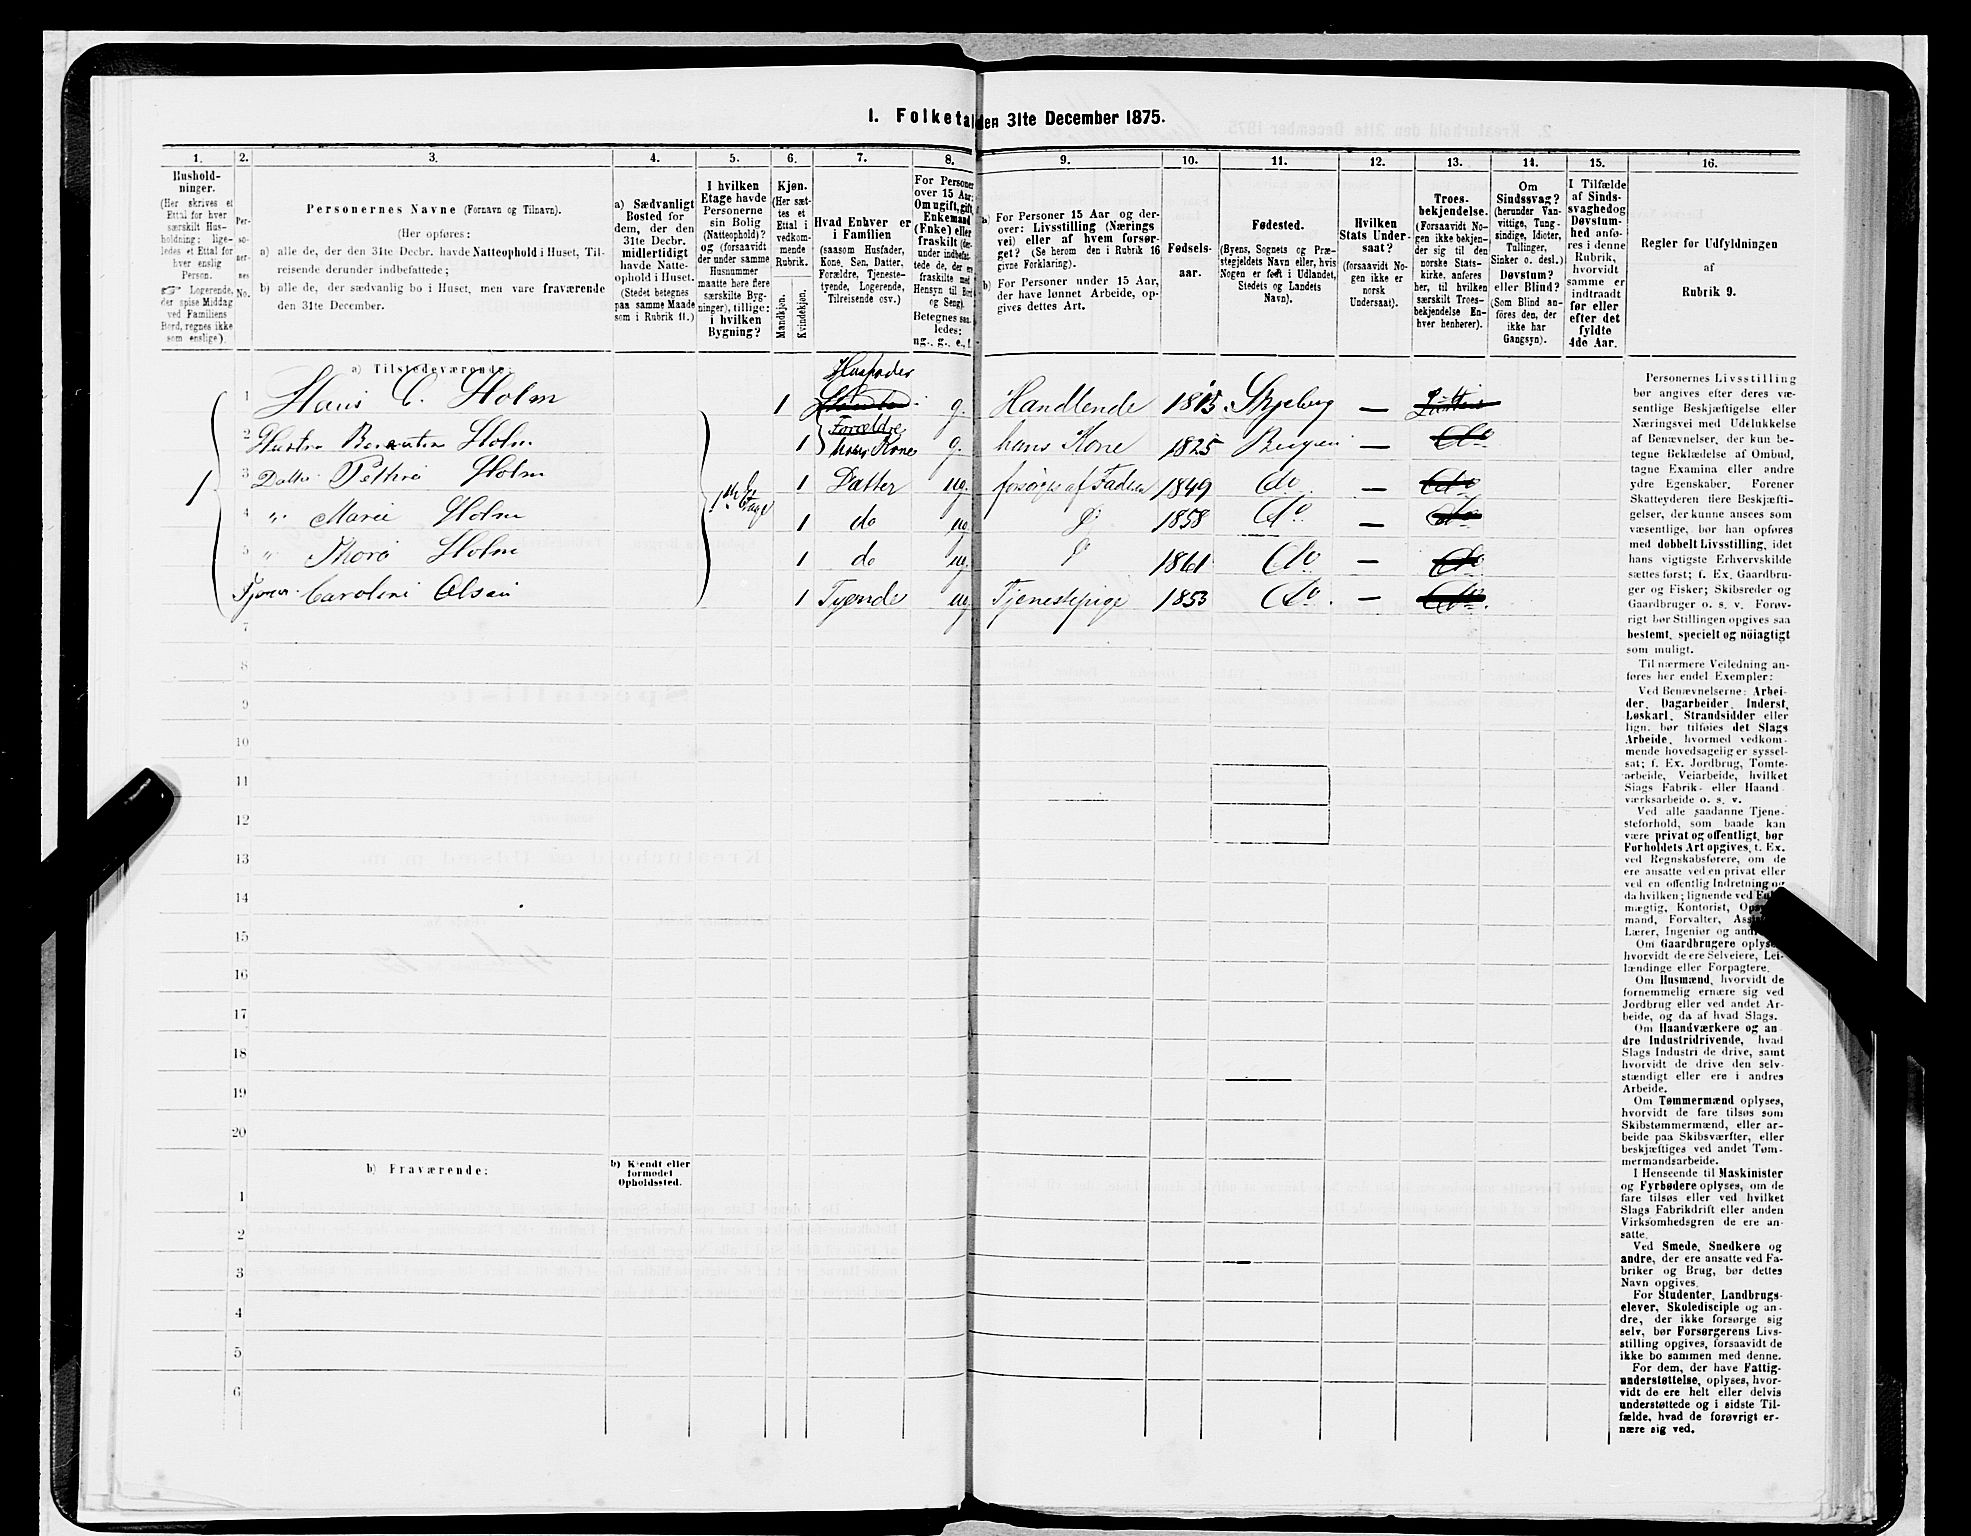 1. Folketal den 31te December 1875.
1. 2. 3. 4. 5. 6. 7. 8. 9. 10. 11. 12. 13. 14. 15. 16.
Hushold-
ninger.
(Her skrives et
Ettal for hver
særskilt Hus-
holdning; lige-
ledes et Ettal for
hver enslig
Person.
Logerende,
der spise Middag
ved Familiens
Bord, regnes ikke
som enslige).
Per-
soner-
nes
No.
Personernes Navne (Fornavn og Tilnavn).
(Her opføres:
a) alle de, der den 31te Decbr. havde Natteophold i Huset, Til-
reisende derunder indbefattede;
b) alle de, der sædvanlig bo i Huset, men vare fraværende
den 31te December.
a) Sædvanligt
Bosted for
dem, der den
31te Decbr.
midlertidigt
havde Natte-
ophold i Huset.
(Stedet betegnes
paa samme Maade
som i Rubrik 11.)
I hvilken
Etage havde
Personerne
sin Bolig
(Natteophold)?
og (forsaavidt
der under samme
Husnummer
maatte høre flere
særskilte Byg-
ninger), tillige:
i hvilken
Bygning?
Kjøn.
(Her sæt-
tes et
Ettal i
vedkom-
mende
Rubrik.
Mandkjøn.
Kvindekjøn.
Hvad Enhver er
i Familien
(saasom Husfader,
Kone, Søn, Datter,
Forældre, Tjeneste-
tyende, Logerende,
Tilreisende osv.)
For Personer
over 15 Aar:
Om ugift, gift,
Enkemand
(Enke) eller
fraskilt
Betegnes saa-
ledes:
ug., g., e., f.
a) For Personer 15 Aar og der-
over: Livsstilling (Nærings
vei) eller af hvem forsør-
get? (Se herom den i Rubrik 16
givne Forklaring).
b) For Personer under 15 Aar,
der have lønnet Arbeide, op-
gives dettes Art.
Fødsels-
aar.
Fødested.
(Byens, Sognets og Præ-
stegjeldets Navn eller, hvis
Nogen er født i Udlandet,
Stedets og Landets
Navn).
Hvilken
Stats Under-
saat?
(forsaavidt No-
gen ikke er
norsk
Undersaat).
Troes-
bekjendelse.
(Forsaavidt No-
gen ikke bekjen-
der sig til den
norske Stats-
kirke, anføres
her, til hvilken
særskilt Troes-
bekjendelse En-
hver henhører).
Om
Sindssvag?
(herunder Van-
vittige, Tung-
sindige, Idioter,
Tullinger,
Sinker o. desl.)
Døvstum?
eller Blind?
(Som Blind an-
føres den, der
ikke har
Gangsyn).
I Tilfælde
af Sinds-
svaghed og
Døvstum-
hed anfø-
res i denne
Rubrik,
hvorvidt
samme er
indtraadt
før eller
efter det
fyldte
4de Aar.
Regler for Udfyldningen
af
Rubrik 9.
a) Tilstedeværende:
1 Hans C. Holm 1 Husfader g. Handlende 1815 Skjeberg —
2 Hustru Holm 1 Forældre hans Kone g. hans Kone 1825 Bergen —
1 3 Datter Holm 1ste Etage 1 Datter ug. forsørges af Faderen 1849 do —
4 " Marie Holm 1 do ug. 1858 do —
5 " Thora Holm 1 do ug. 1861 do —
Caroline Olsen 1 Tyende ug. Tjenestepige 1853 do. —
7
8
9
10
11
12
13
14
15
16
17
18
19
20
b) Fraværende:
b) Kjendt eller
formodet
Opholdssted.
1
2
3
4
5
6
Personernes Livsstilling
bør angives efter deres væ-
sentlige Beskjæftigelse eller
Næringsvei med Udelukkelse
af Benævnelser, der kun be-
tegne Beklædelse af Ombud,
tagne Examina eller andre
ydre Egenskaber. Forener
Skatteyderen flere Beskjæfti-
gelser, der kunne ansees som
væsentlige, bør han opføres
med dobbelt Livsstilling, idet
hans vigtigste Erhvervskilde
sættes først; f. Ex. Gaardbru-
ger og Fisker; Skibsreder og
Gaardbruger o. s. v. Forøv-
rigt bør Stillingen opgives saa
bestemt, specielt og nöiagtigt
som muligt.
Til nærmere Veiledning an-
føres her endel Exempler:
Ved Benævnelserne: Arbei-
der, Dagarbeider, Inderst,
Løskarl, Strandsidder eller
lign. bør tilføies det Slags
Arbeide, hvormed vedkom-
mende hovedsagelig er syssel-
sat; f. Ex. Jordbrug, Tomte-
arbeide, Veiarbeide, hvilket
Slags Fabrik- eller Haand
værksarbeide o. s. v.
Ved alle saadanne Tjene-
steforhold, som baade kan
være privat og offentligt, bør
Forholdets Art opgives, f. Ex.
ved Regnskabsførere, om de
ere ansatte ved en privat eller
ved en offentlig Indretning og
da hvilken; lignende ved
mægtig, Kontorist,
mand, Forvalter,
Lærer, Ingeniør og
Om Gaardbrugere
hvorvidt de ere Selveiere, Lei-
lændinge eller Forpagtere.
Om Husmænd, hvorvidt de
fornemmelig ernære sig ved
Jordbrug eller ved andet Ar-
beide, og da af hvad Slags.
Om Haandværkere og an
dre Industridrivende, hvad
Slags Industri de drive, samt
hvorvidt de drive den selv-
stændigt eller ere i andres
Arbeide.
Om Tømmermænd oplyses,
hvorvidt de fare tilsøs som
Skibstømmermænd, eller ar-
beide paa Skibsværfter, eller
beskjæftiges ved andet Tøm-
mermandsarbeide.
I Henseende til Maskinister
og Fyrbødere oplyses, om de
fare tilsøs eller ved hvilket
Slags Fabrikdrift eller anden
Virksomhedsgren de ere an-
satte.
Ved Smede, Snedkere og
andre, der ere ansatte ved Fa-
briker og Brug, bør dettes
Navn opgives.
For Studenter, Landbrugs-
elever, Skoledisciple og an-
dre, der ikke forsørge sig
selv, bør Forsørgerens Livs-
stilling opgives, forsaavidt de
ikke bo sammen med denne.
For dem, der have Fattig-
understøttelse, oplyses, hvor-
vidt de ere helt eller delvis
understøttede og i sidste Til-
fælde, hvad de forøvrigt er-
nære sig ved.